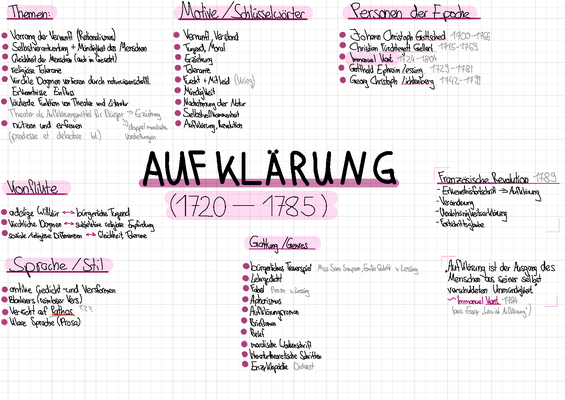 Themen:
Vorrang der Vernunft (Rationalismus)
Selbstverantwortung + Mündigkeit des Menschen
Gleichheit der Menschen (auch im Gesetz)
religiöse Toleranz
Kirchliche Dogmen verlieren durch naturwissenschaftl.
Erkenntnisse Einfluss
belehrende Funktion von Theater und Literatur
Theater als Aufklärungsmittel für Bürger → Erziehung
nützen und erfreuen
(prodesse et delectare)
Motive / Schlüsselwörter
Vernunft, Verstand
Tugend, Moral
Erziehung
Toleranz
Furcht + Mitleid
Mündigkeit
Nachahmung der Natur
Selbstvollkommenheit
Aufklärung, Revolution
Personen der Epoche
Johann Christoph Gottsched 1700-1766
Christian Fürchtegott Gellert 1715-1769
Immanuel Kant 1724-1804
Gotthold Ephraim Lessing 1729-1781
Georg Christoph Lichtenberg 1742-1799
AUFKLÄRUNG
(1720 — 1785)
Konflikte
adelige Willkür ↔ bürgerliche Tugend
kirchliche Dogmen ↔ subjektive religiöse Empfindung
soziale/religiöse Differenzen ↔ Gleichheit, Toleranz
Französische Revolution 1789
- Erkenntnisfortschritt → Aufklärung
- Veränderung
- Unabhängigkeitserklärung
- Fortschrittsglaube
Sprache / Stil
antike Gedicht- und Versformen
Blankvers (reimloser Vers)
Verzicht auf Pathos ???
Klare Sprache (Prosa)
Gattung / Genres
bürgerliches Trauerspiel Miss Sara Sampson, Emilia Galotti v. Lessing
Lehrgedicht
Fabel Prosa v. Lessing
Aphorismus
Aufklärungsroman
Briefroman
Brief
moralische Wochenschrift
literaturtheoretische Schriften
Enzyklopädie Diderot
„Aufklärung ist der Ausgang des
Menschen aus seiner selbst
verschuldeten Unmündigkeit"
~ Immanuel Kant 1784
(aus Essay „Was ist Aufklärung")